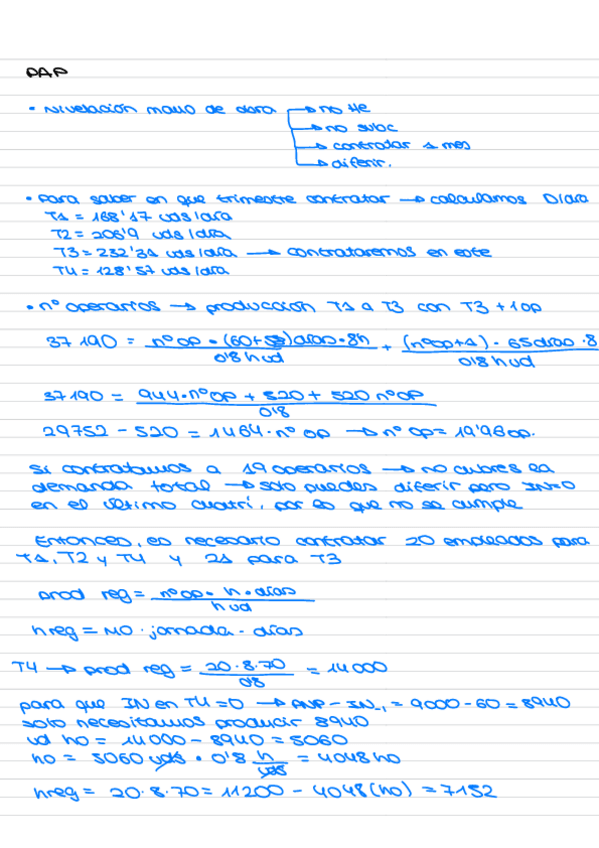 PAP
• Nivelación mano de obra → no He
→ no subc
→ contratar 1 mes
→ diferir.
• para saber en que trimestre contratar → calculamos D/día
T1 = 168'17 uds/día
T2 = 206'9 uds/día
T3 = 232'31 uds/día → contrataremos en este
T4 = 128'57 uds/día
• nº operarios → producción T1 a T3 con T3 + 1 op
37 190 = nº op · (60+58) días · 8h / 0'8 h ud + (nºop+1) · 65 días · 8 / 0'8 h ud
37190 = 944 · nº op + 520 + 520 nº op / 0'8
29752 - 520 = 1464 · nº op → nº op = 19'96 op.
Si contratamos a 19 operarios → no cubres la
demanda total → solo puedes diferir pero IN=0
en el último cuatri, por lo que no se cumple
Entonces, es necesario contratar 20 empleados para
T1, T2 y T4 y 21 para T3
prod reg = nº op · h · días / h ud
hreg = MO · jornada · días
T4 → prod reg = 20 · 8 · 70 / 0'8 = 14000
para que IN en T4 = 0 → PNP - IN-1 = 9000 - 60 = 8940
solo necesitamos producir 8940
ud ho = 14000 - 8940 = 5060
ho = 5060 uds · 0'8 h/uds = 4048 ho
hreg = 20 · 8 · 70 = 11200 - 4048 (ho) = 7152